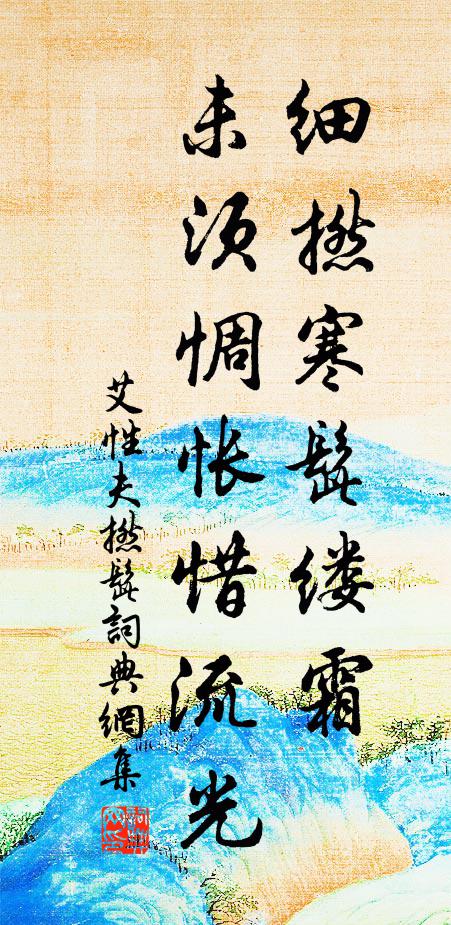 细撚寒髭缕霜
未须惆怅惜流光
艾性夫撚髭詞典網集